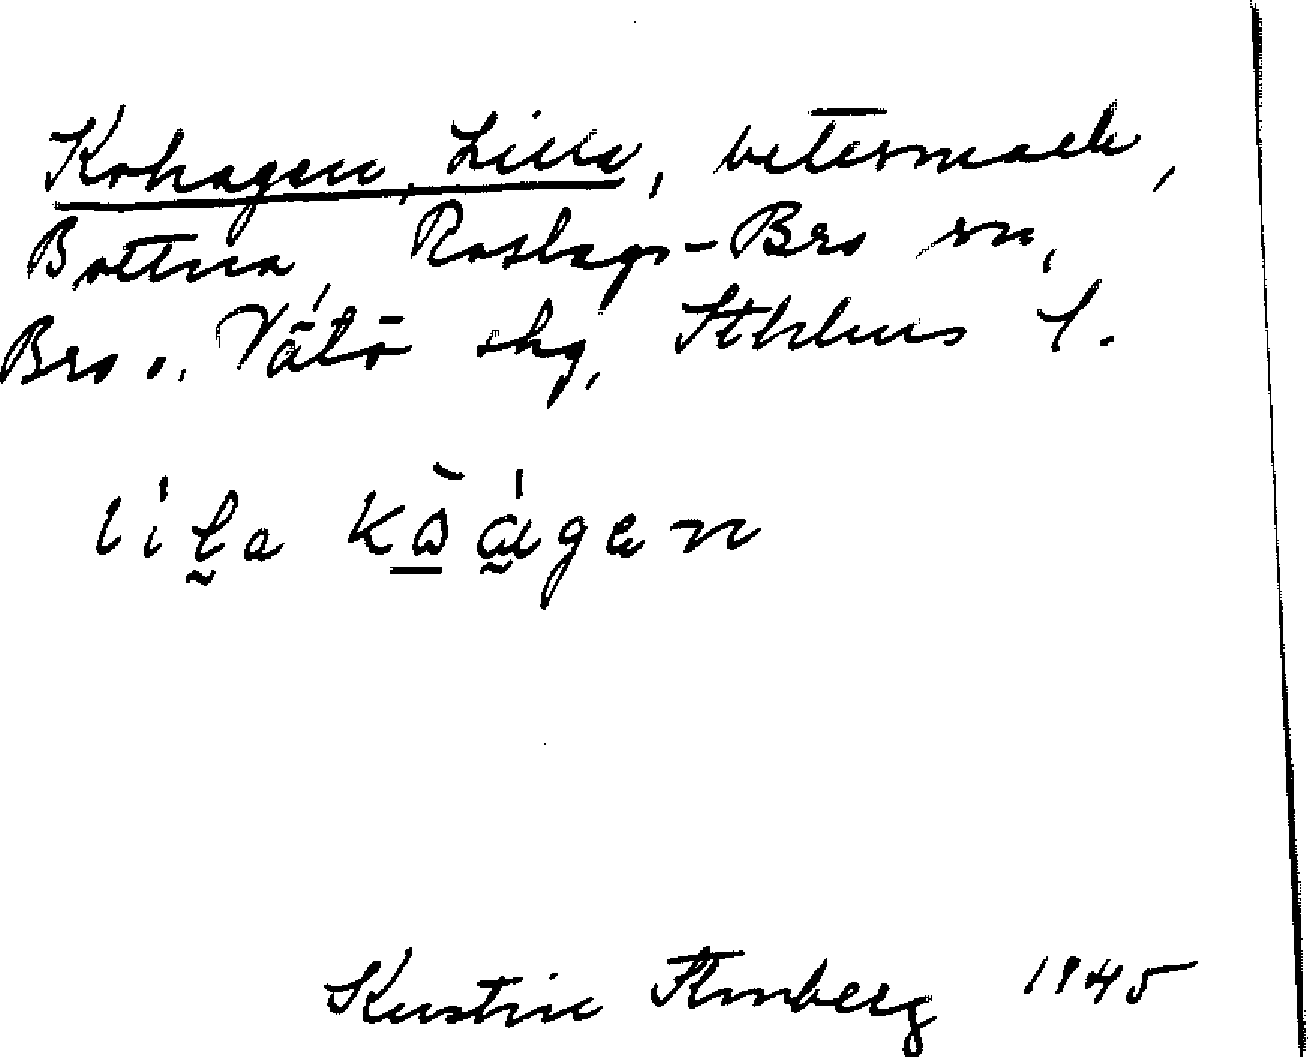 Kohagen, Lilla, betesmark,
Bottna, Roslags-Bro sn,
Bro o. Vätö skg, Sthlms l.
lila kɷ̀ ágen
Kerstin 1945